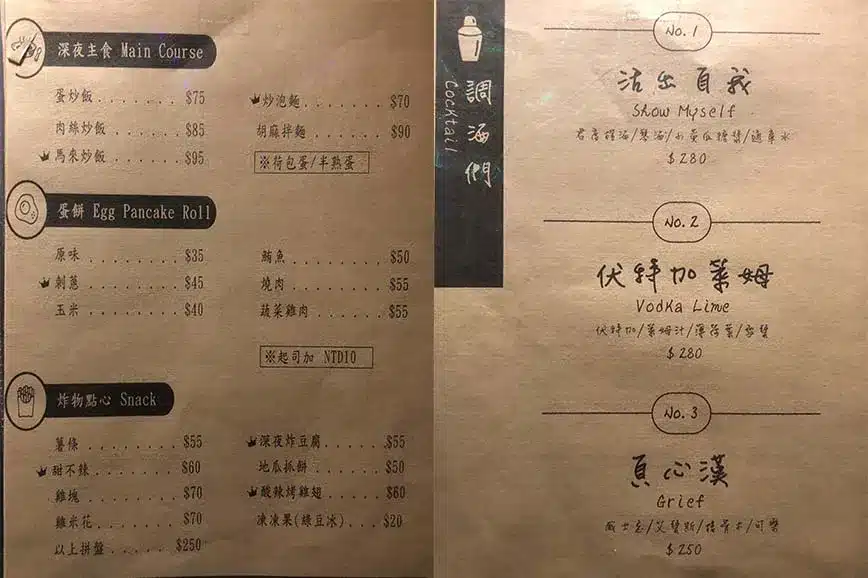 深夜主食 Main Course
蛋炒飯........$75
肉絲炒飯......$85
馬來炒飯......$95
炒泡麵.......$70
胡麻拌麵......$90
※荷包蛋/半熟蛋
蛋餅 Egg Pancake Roll
原味.........$35
剝蔥.........$45
玉米.........$40
鮪魚.........$50
燒肉.........$55
蔬菜雞肉......$55
※起司加 NTD10
炸物點心 Snack
薯條.........$55
甜不辣.......$60
雞塊.........$70
雞米花.......$70
以上拼盤.....$250
深夜炸豆腐.....$55
地瓜抓餅......$50
酸辣烤雞翅.....$60
凍凍果(綠豆冰)...$20
調酒們
Cocktail
No. 1
活出自我
Show Myself
$280
No. 2
伏特加萊姆
Vodka Lime
伏特加/萊姆汁/薄荷葉/雪碧
$280
No. 3
負心漢
Grief
$250